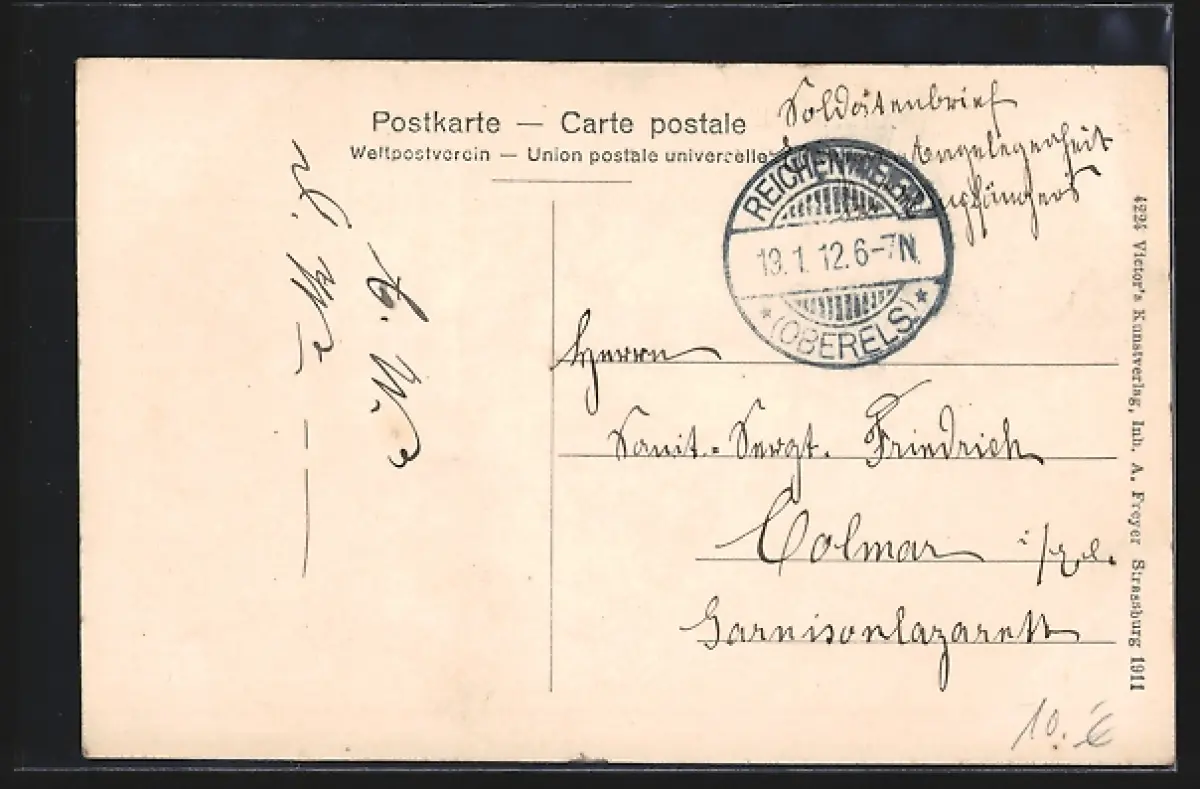 Postkarte — Carte postale
Weltpostverein — Union postale universelle
Soldatenbrief
Angelegenheit
Empfängers
REICHENWEIER
19.1.12.6-7N.
* (OBERELS.) *
Herrn
Sanit.-Sergt. Friedrich
Colmar i/Els.
Garnisonlazarett
4224 Victor's Kunstverlag, Inh. A. Freyer Strassburg 1911
10.-€